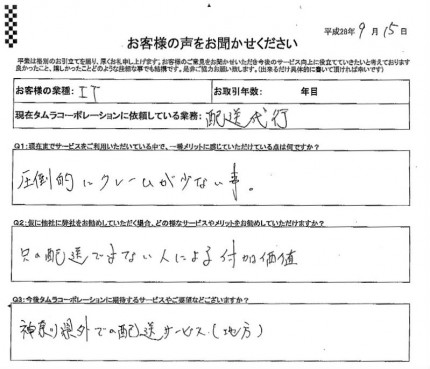 平成28年 9月 15日
お客様の声をお聞かせください
平素は格別のお引立てを賜り、厚くお礼申し上げます。お客様のご意見をお聞かせいただき今後のサービス向上に役立てていきたいと考えております
良かったこと、嬉しかったことどのような些細な事でも結構です。是非ご協力お願い致します。(出来るだけ具体的に書いて頂ければ幸いです)
お客様の業種: IT お取引年数: 年目
現在タムラコーポレーションに依頼している業務: 配送代行
Q1:現在までサービスをご利用いただいている中で、一番メリットに感じていただけている点は何ですか?
圧倒的にクレームが少ない事。
Q2:仮に他社に弊社をお勧めしていただく場合、どの様なサービスやメリットをお勧めしていただけますか?
只の配送でまない人による付加価値
Q3:今後タムラコーポレーションに期待するサービスやご要望などございますか?
神奈川県外での配送サービス(地方)